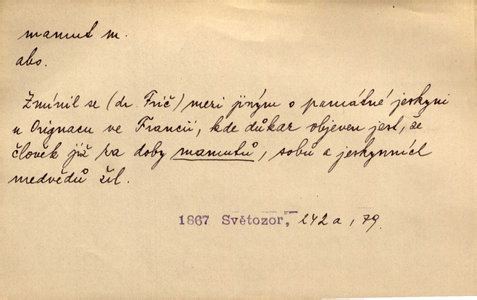 mamut m.
abs.
Zmínil se (dr. Frič) mezi jiným o památné jeskyni
u Orignacu ve Francii, kde důkaz objeven jest, že
člověk již za doby mamutů, sobů a jeskynních
medvědů žil.
1867 Světozor, 242a, 79.